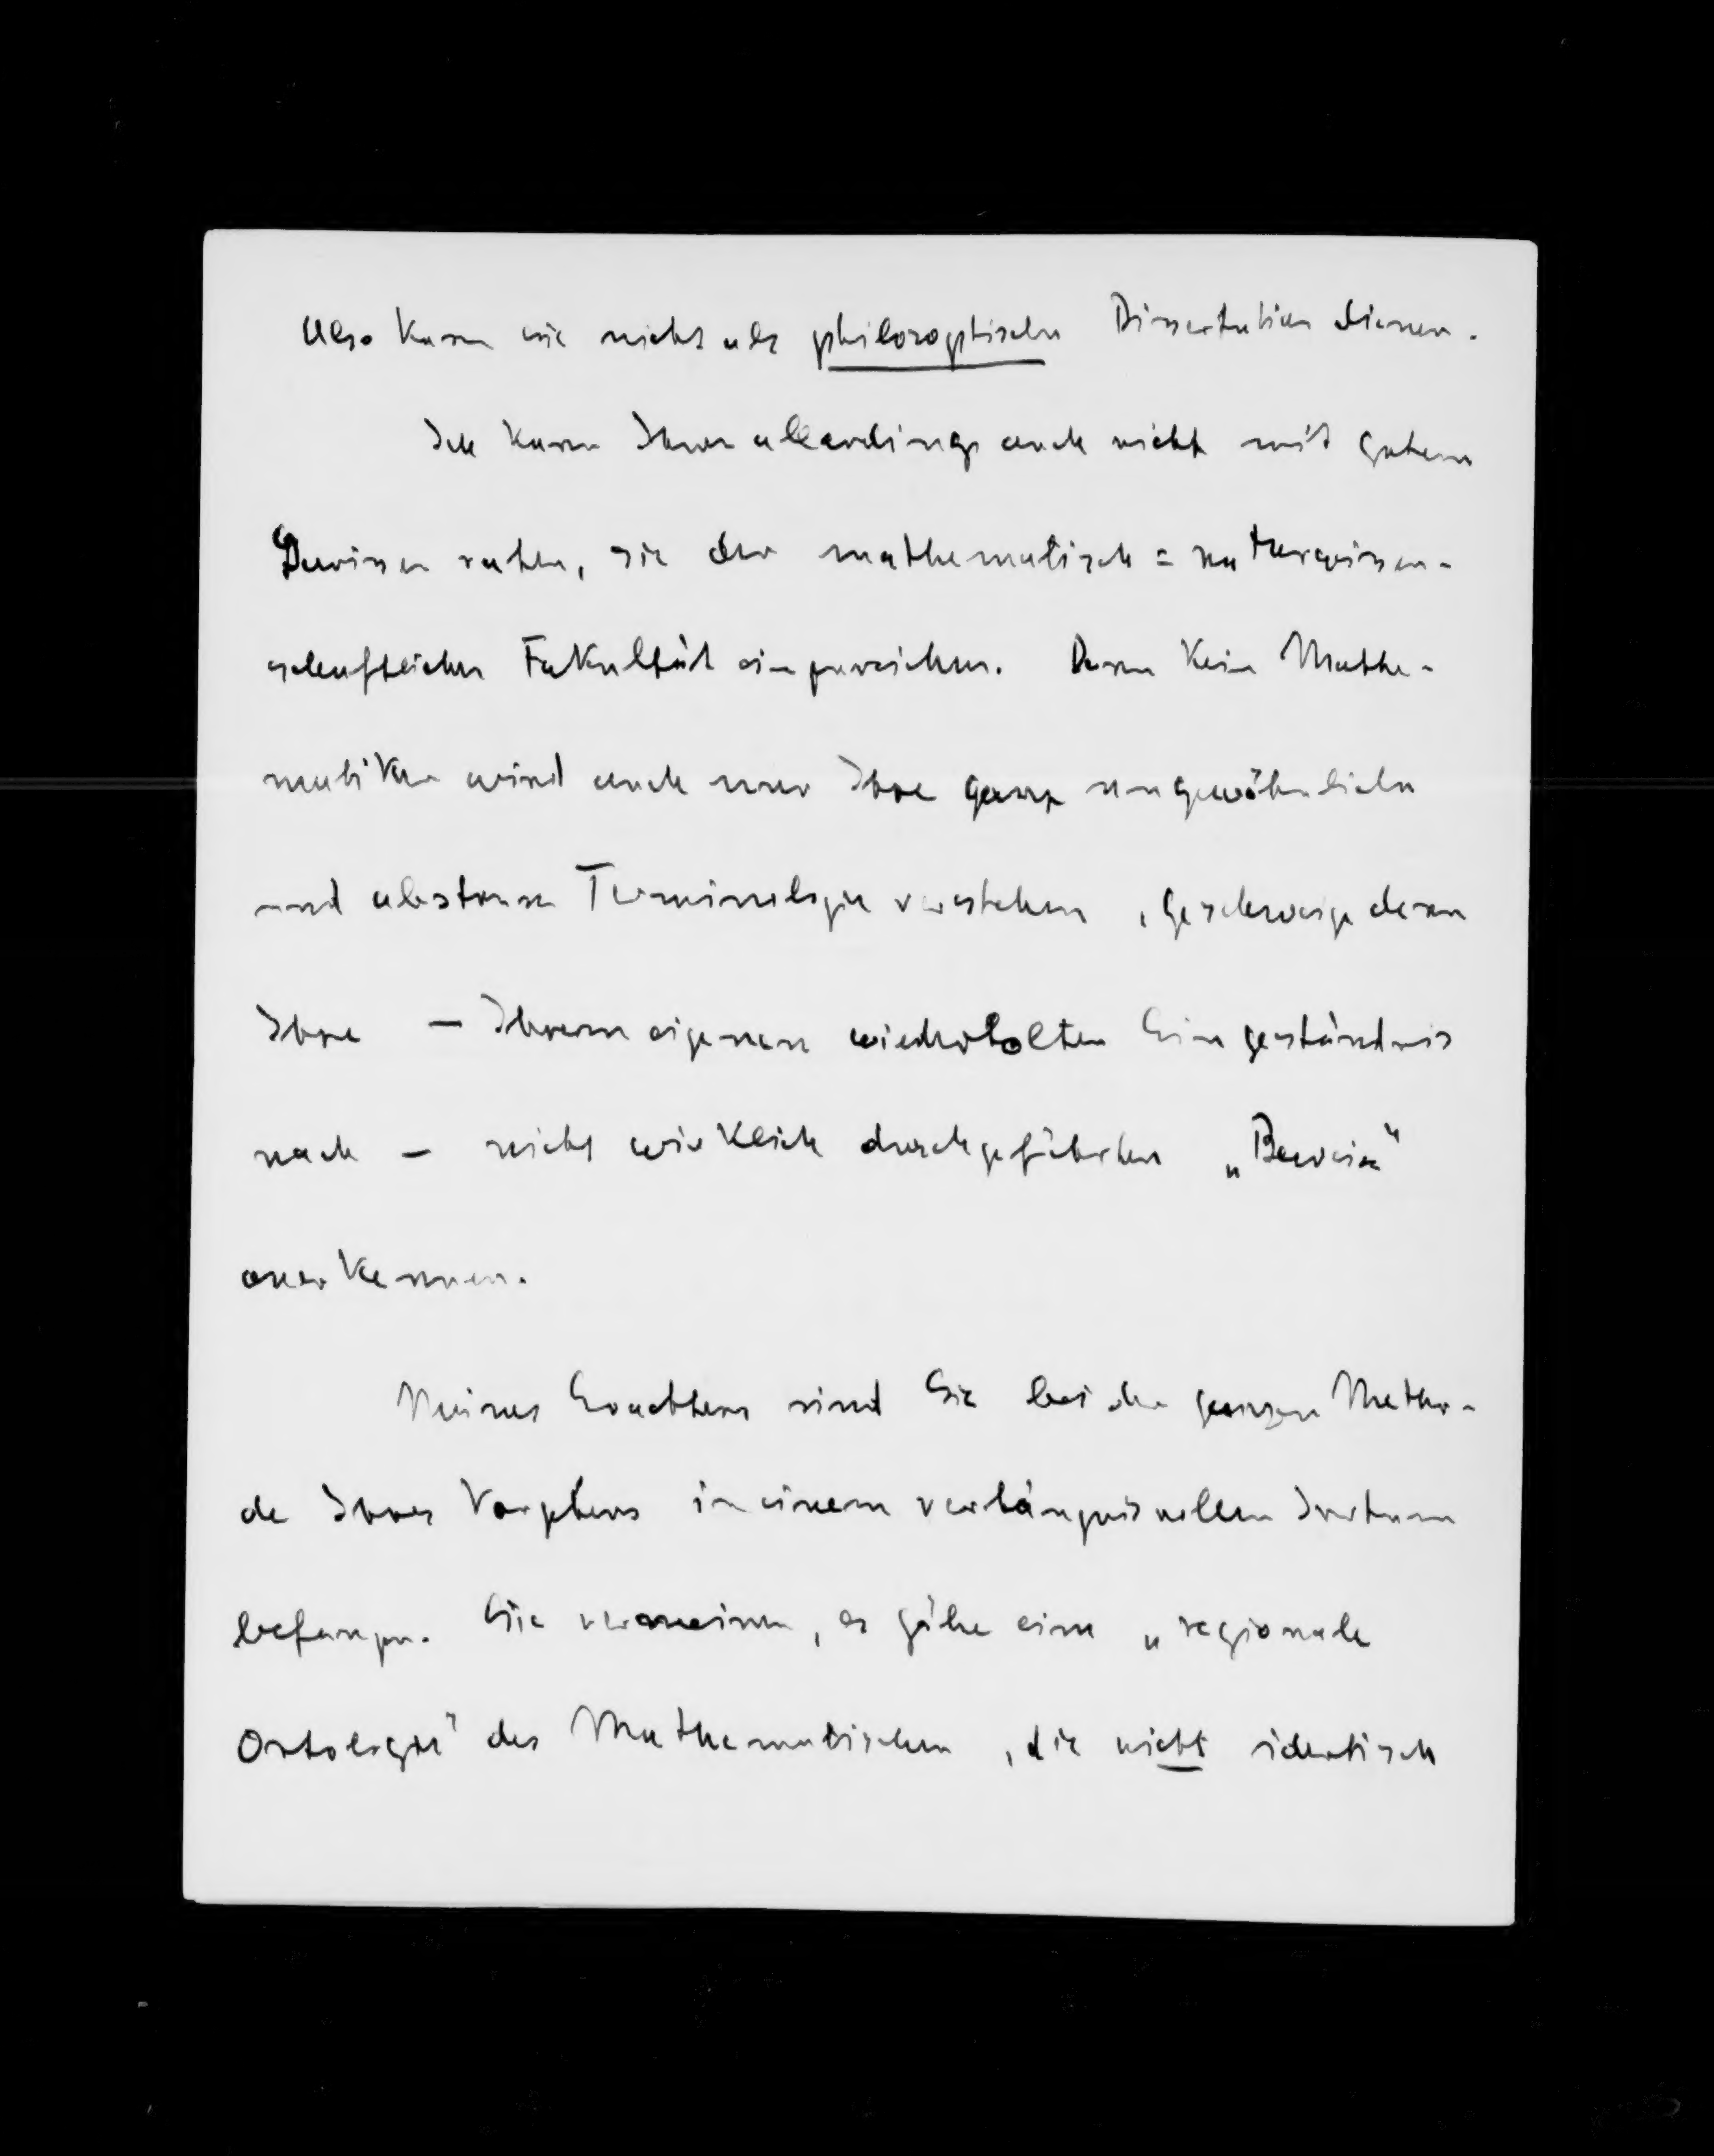 Also kann sie nicht als philosophische Dissertation dienen.
Ich kann Ihnen allerdings auch nicht mit gutem
Gewissen raten, sie der mathematisch=naturwissen-
schaftlichen Fakultät einzureichen. Denn kein Mathe-
matiker wird auch nur Ihre ganz ungewöhnliche
und abstruse Terminologie verstehen, geschweige denn
Ihre – Ihrem eigenen wiederholten Eingeständnis
nach – nicht wirklich durchgeführten „Beweise“
anerkennen.
Meines Erachtens sind Sie bei der ganzen Metho-
de Ihres Vorgehens in einem verhängnisvollen Irrtum
befangen. Sie vermeinen, es gäbe eine „regionale
Ontologie“ des Mathematischen, die nicht identisch